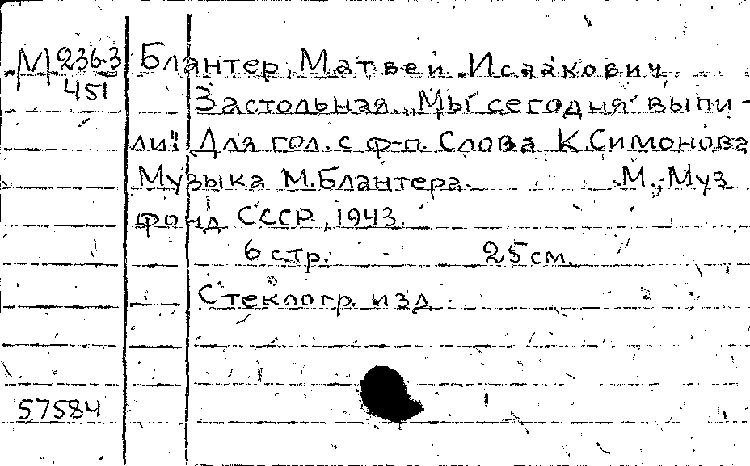 М 236-3
451
Блантер, Матвей Исаакович
Застольная. „Мы сегодня выпи-
ли". Для гол. с ф-п. Слова К. Симонова
Музыка М. Блантера. М., Муз
фонд СССР, 1943.
6 стр. 25 см.
Стеклогр. изд.
57584